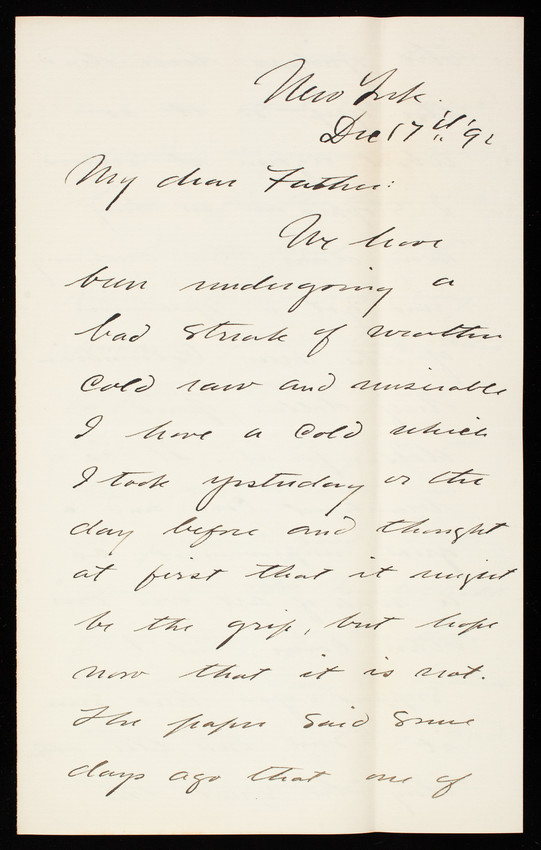 New York.
Dec 17th '92
My dear Father:
We have
been undergoing a
bad streak of weather
cold raw and miserable
I have a cold which
I took yesterday or the
day before and thought
at first that it might
be the grip, but hope
now that it is not.
The paper said some
days ago that one of